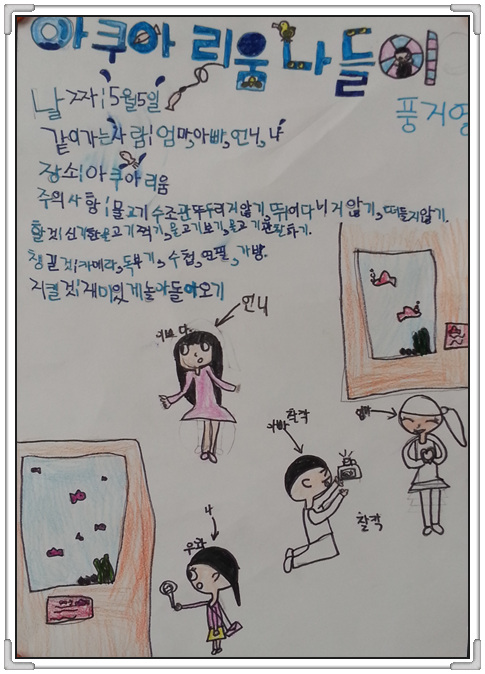 아쿠아리움 나들이
풍지영
날짜 : 5월 5일
같이가는사람 : 엄마, 아빠, 언니, 나
장소 : 아쿠아리움
주의사항 : 물고기 수조관 뚜두리지않기, 뛰어다니지않기, 떠들지않기.
할것 : 신기한물고기찍기, 물고기보기, 물고기관찰하기.
챙길것 : 카메라, 돋보기, 수첩, 연필, 가방.
지킬것 : 재미있게놀아돌아오기
언니
이쁘다
찰칵
아빠
엄마
찰칵
나
우와